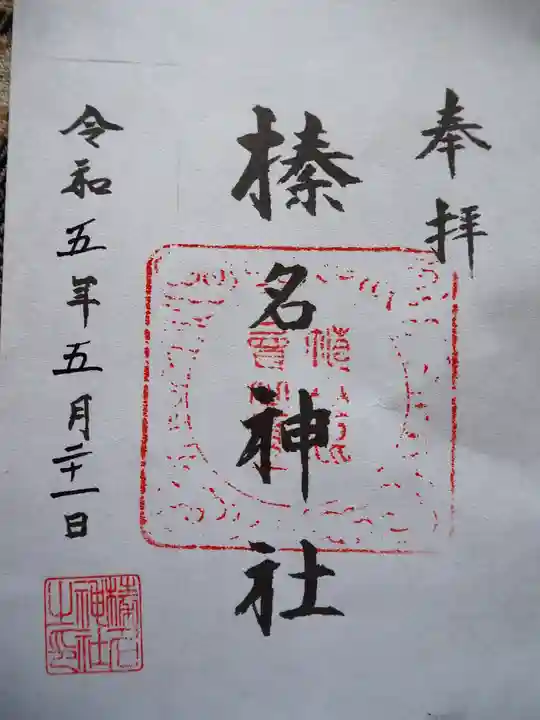 奉拝
榛名神社
令和五年五月二十一日
榛名神社之印